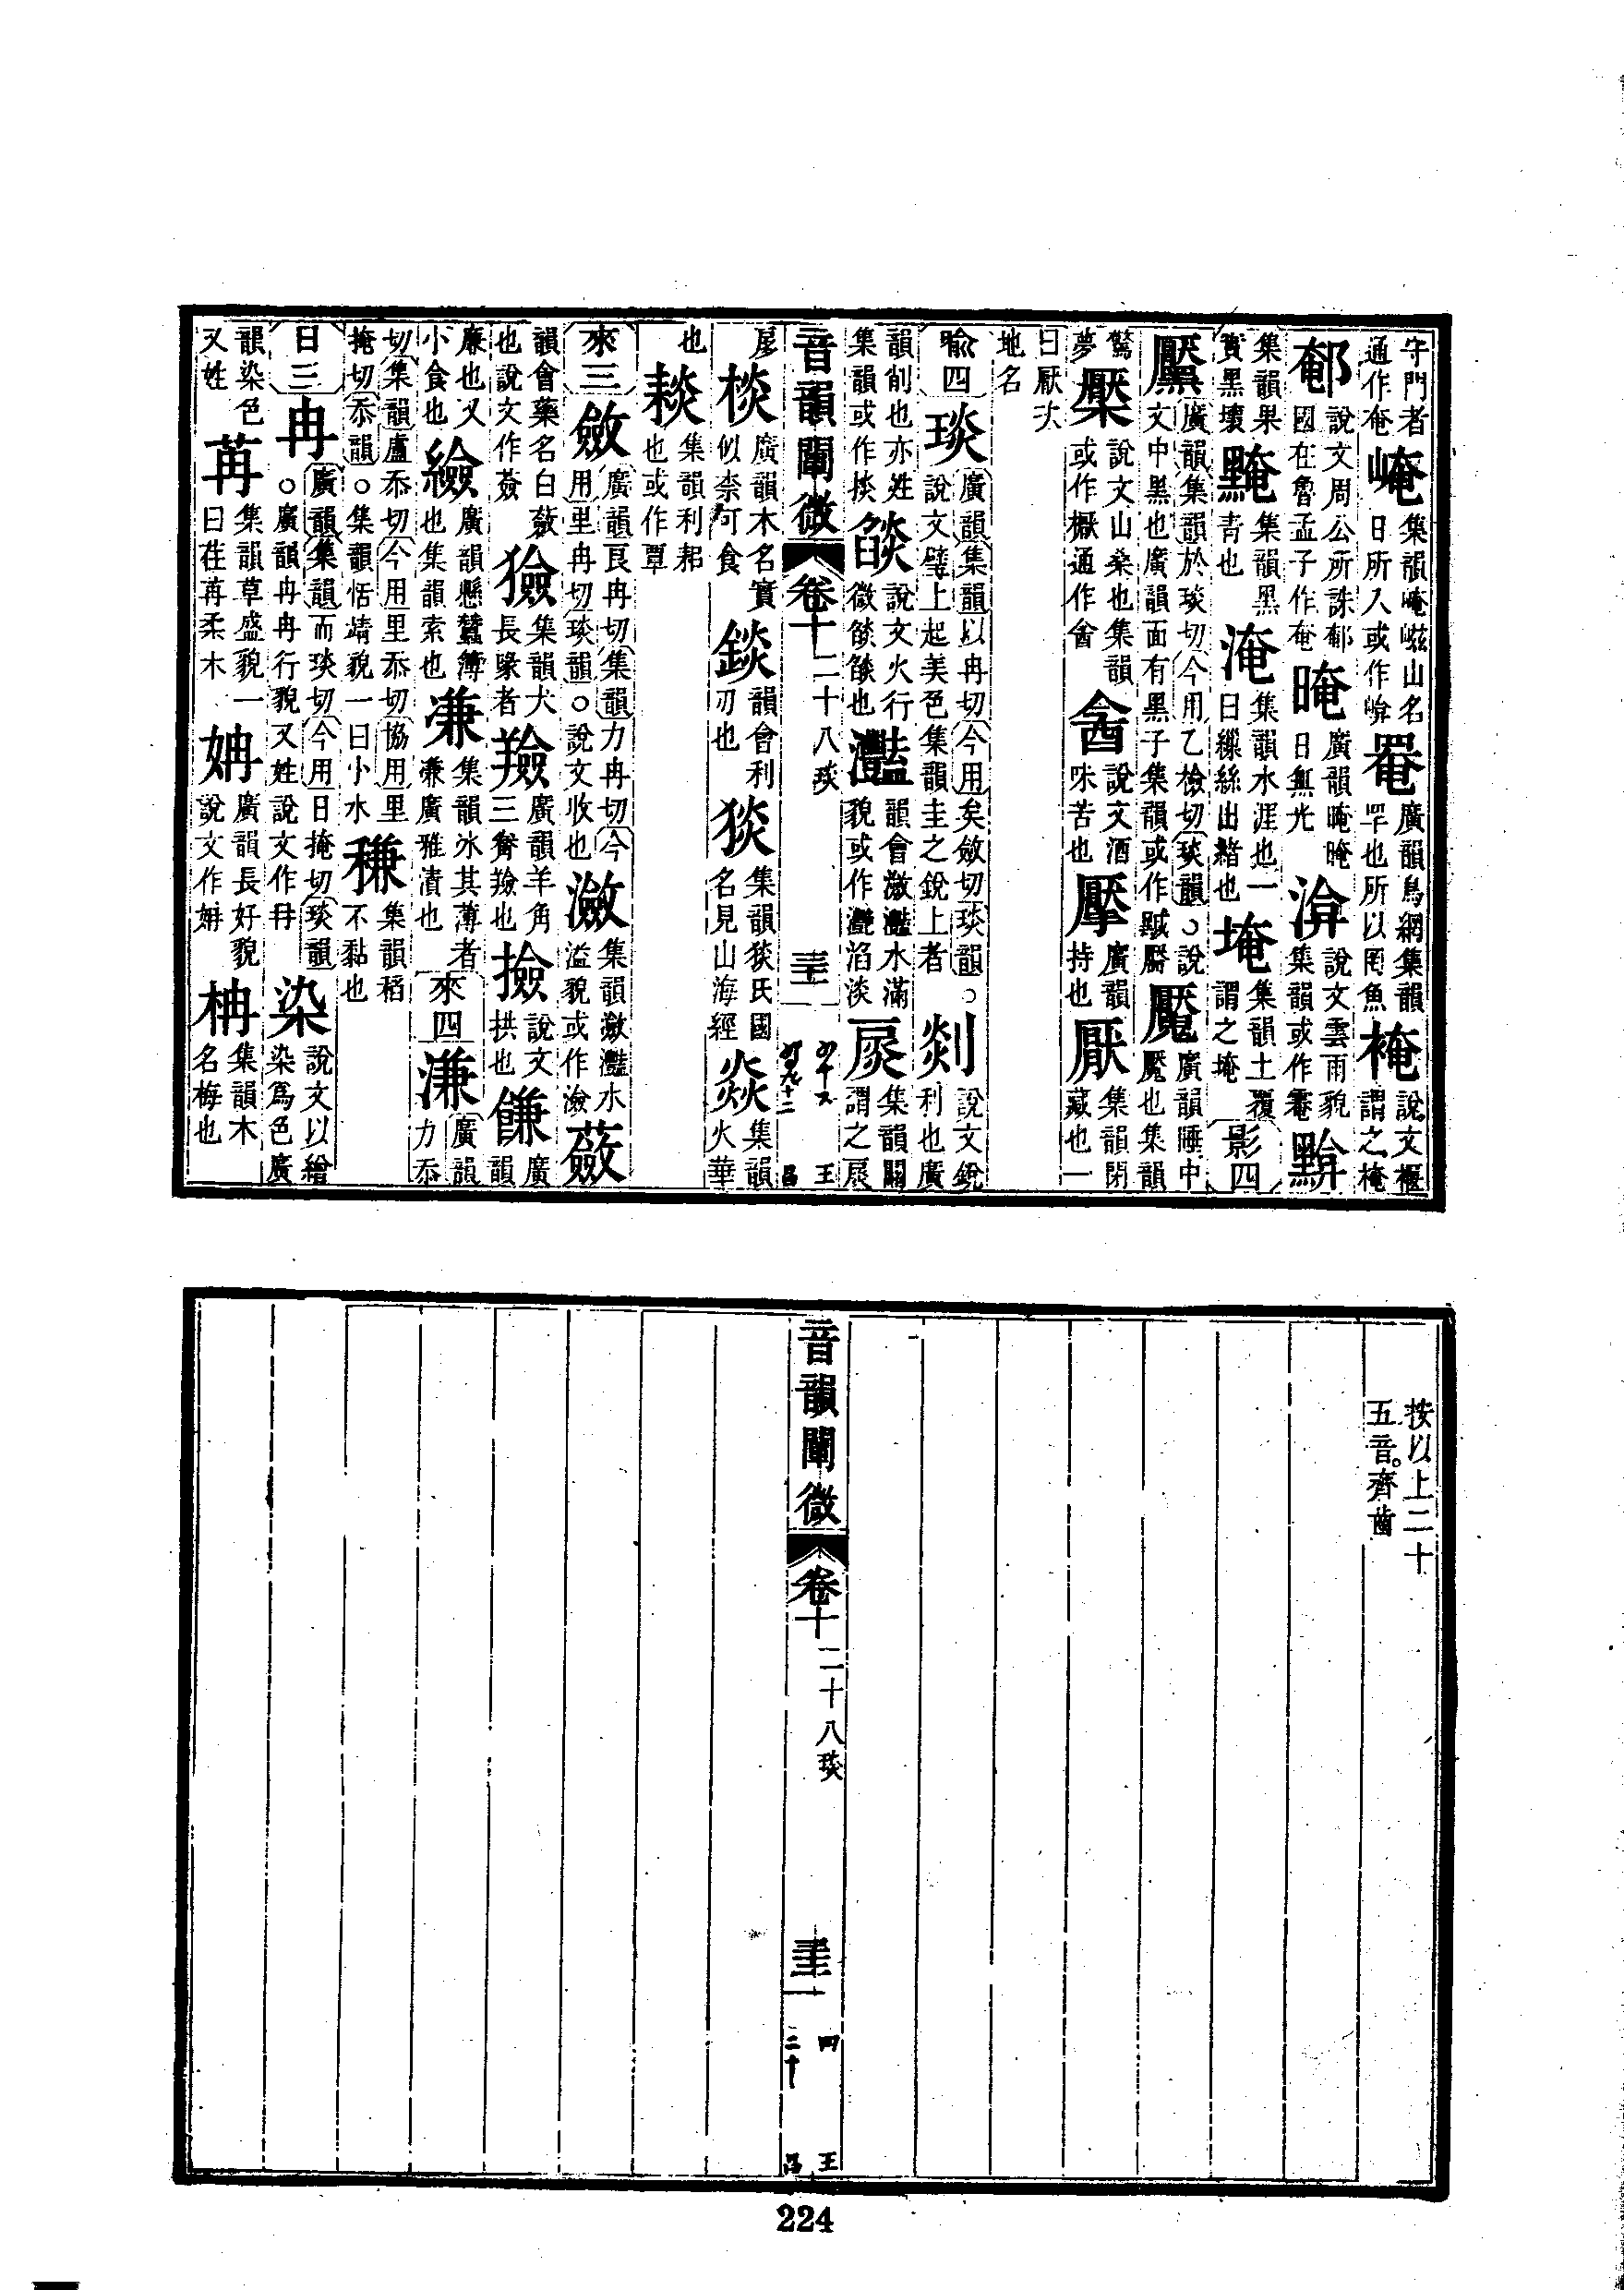 守門者通作奄崦集韻崦嵫山名日所入或作㟏罨廣韻鳥網集韻罕也所以罔魚裺說文褗謂之裺
郺說文周公所誅郺國在魯孟子作奄晻廣韻晻晻日無光渰說文雲雨貌集韻或作黭
集韻果實黑壞黤集韻黑青也淹集韻水涯也一曰繅絲出緒也埯集韻土覆謂之埯影四
黶廣韻集韻於琰切今用乙檢切琰韻○說文中黑也廣韻面有黑子集韻或作魘廣韻睡中魘也集韻
驚夢檿說文山桑也集韻或作通作酓酓說文酒味苦也擪廣韻持也厭集韻閉藏也一
曰厭次地名
喻四琰廣韻集韻以冉切今用矣斂切琰韻○說文璧上起美色集韻圭之銳上者剡說文銳利也廣
韻削也亦姓集韻或作掞燄說文火行微燄燄也灩韻會瀲灩水滿貌或作灧淊淡扊集韻關謂之扊
音韻闡微 卷十 二十八琰
扊棪廣韻木名實似柰可食錟韻會利刃也集韻氏國名見山海經焱集韻火華
也䎦集韻利耜也或作覃
來三斂廣韻良冉切集韻力冉切今用里冉切琰韻○說文收也瀲集韻瀲灩水溢貌或作澰蘞
韻會藥名白蘞也說文作薟獫集韻犬長喙者羷廣韻羊角三觠羷也撿說文拱也廣韻
廉也又小食也廣韻懸蠶簿也集韻索也集韻冰其薄者廣雅漬也來四溓廣韻力忝
切集韻盧忝切今用里忝切協用里掩切忝韻○集韻恬靖貌一曰小水稴集韻稻不黏也
日三冉廣韻集韻而琰切今用日掩切琰韻○廣韻冉冉行貌又姓說文作冄染說文以繒染爲色廣
韻染色又姓苒集韻草盛貌一曰荏苒柔木姌廣韻長好貌說文作枏集韻木名梅也
按以上二十五音。齊齒
音韻闡微 卷十 二十八琰
224